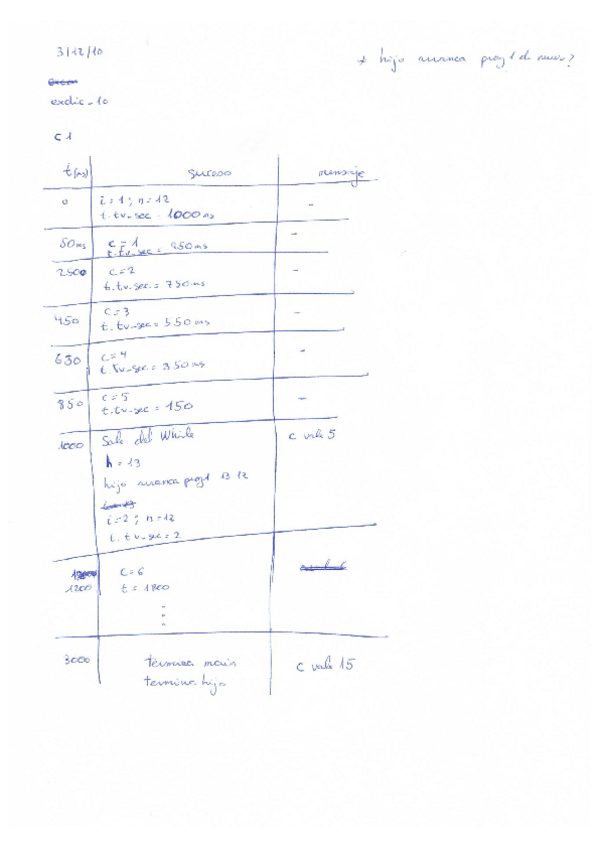 3/12/10
* hijo arranca prog1 de nuevo?
exdic-10
C1
t(ms) suceso mensaje
0 i=1; n=12 -
t.tv-sec = 1000 ms
50ms c=1 -
t.tv-sec = 950ms
2500 c=2 -
t.tv-sec = 750ms
450 c=3 -
t.tv-sec = 550 ms
630 c=4 -
t.tv-sec = 350ms
850 c=5 -
t.tv-sec = 150
1000 Sale del While c vale 5
h=13
hijo arranca prog1 13 12
i=2; n=12
t.tv-sec=2
1200 c=6
t = 1800
3000 termina main c vale 15
termina hijo